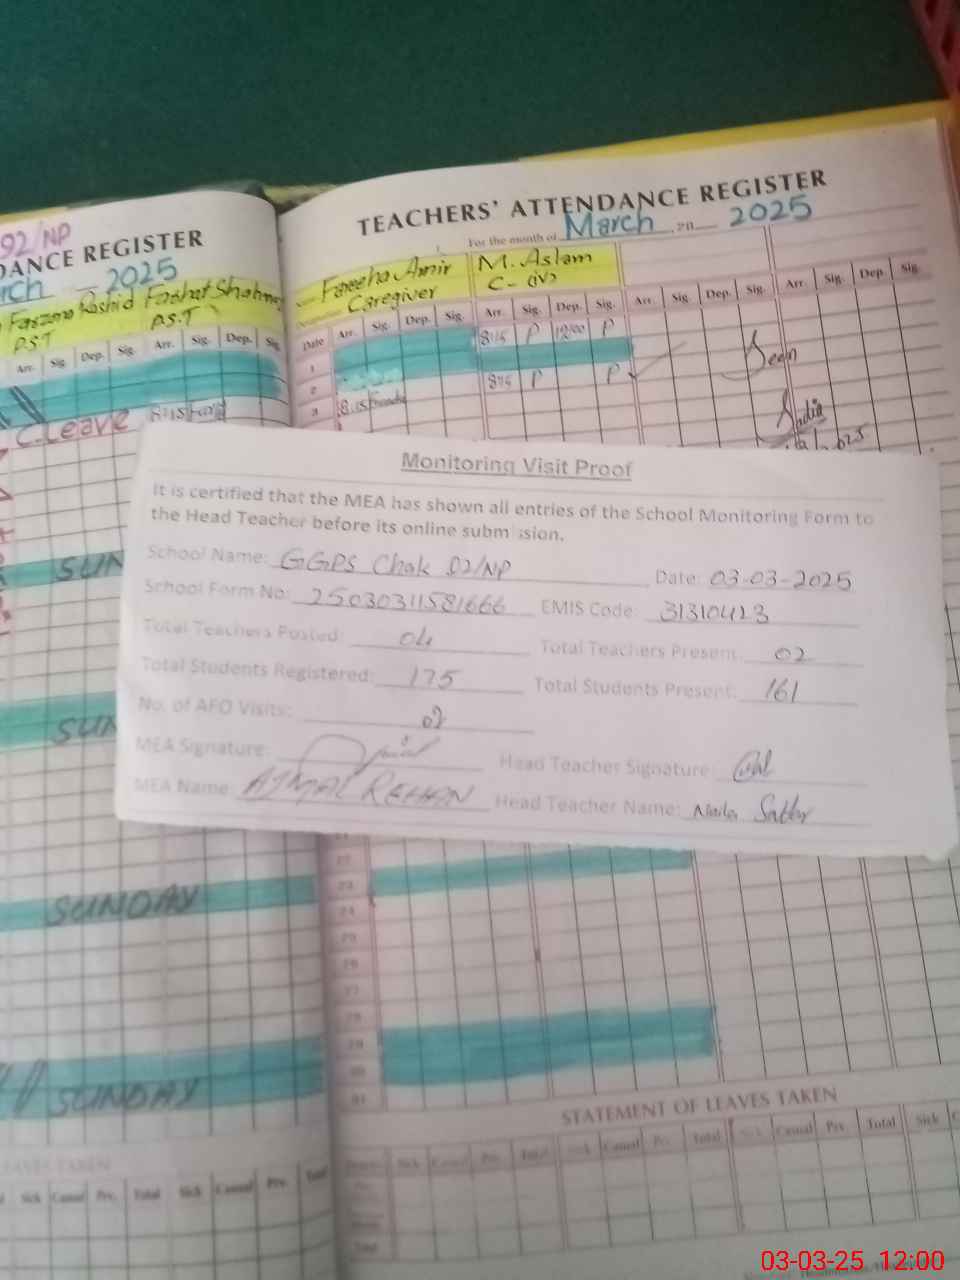 92/NP
DANCE REGISTER
rch 2025
Farzana Rashid Farhat Shahnaz
P.S.T P.S.T
Arr. Sig. Dep. Sig. Arr. Sig. Dep. Sig
C. Leave 8:15
SUN
SUN
SUNDAY
SUNDAY
LEAVES TAKEN
Sick Casual Prv. Total Sick Casual Prv. Total
TEACHERS' ATTENDANCE REGISTER
For the month of March 20 2025
Fareeha Amir M. Aslam
Caregiver C- (iv)
Date Arr. Sig. Dep. Sig. Arr. Sig. Dep. Sig. Arr. Sig. Dep. Sig. Arr. Sig. Dep. Sig.
1 8:15 P 12:00 P
2
3 8:15 8:15 P P
Monitoring Visit Proof
It is certified that the MEA has shown all entries of the School Monitoring Form to
the Head Teacher before its online submission.
School Name: GGPS Chak 92/NP Date: 03-03-2025
School Form No: 25030311581666 EMIS Code: 31310423
Total Teachers Posted: 04 Total Teachers Present: 02
Total Students Registered: 175 Total Students Present: 161
No. of AEO Visits:
MEA Signature: Head Teacher Signature:
MEA Name: AJMAL REHAN Head Teacher Name: Naila Sattar
22
23
24
25
26
27
28
29
30
31
STATEMENT OF LEAVES TAKEN
Sick Casual Prv. Total Sick Casual Prv. Total Sick Casual Prv. Total Sick
Total
03-03-25 12:00